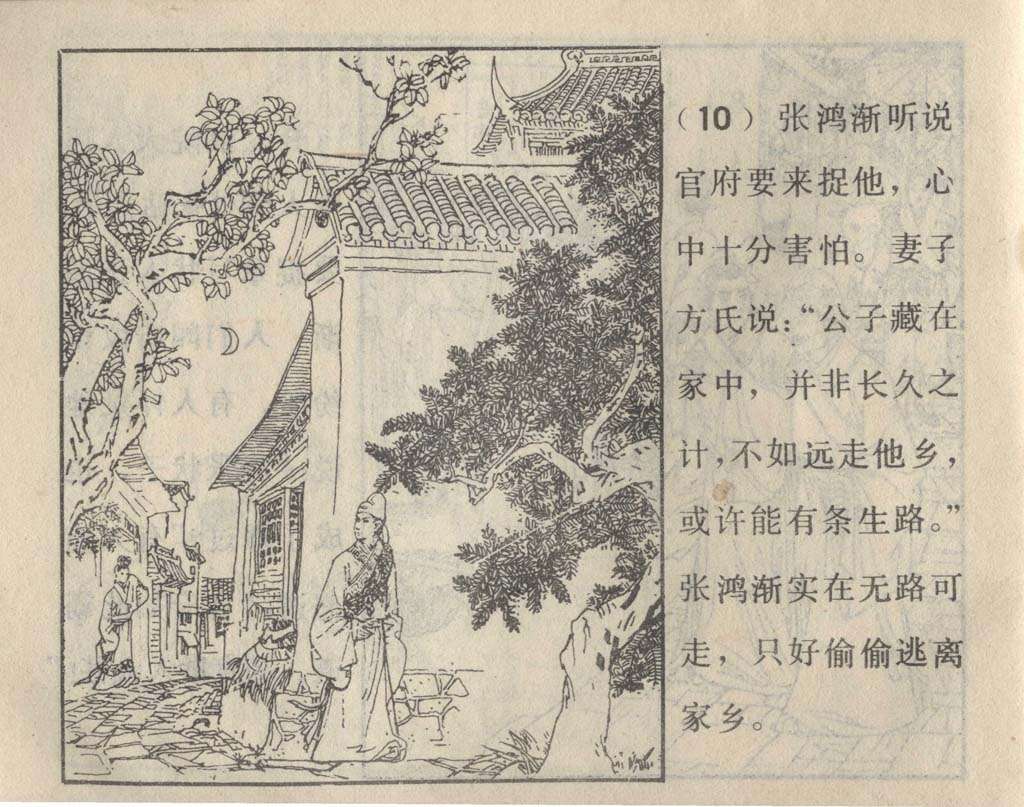 （10）张鸿渐听说
官府要来捉他，心
中十分害怕。妻子
方氏说：“公子藏在
家中，并非长久之
计，不如远走他乡，
或许能有条生路。”
张鸿渐实在无路可
走，只好偷偷逃离
家乡。